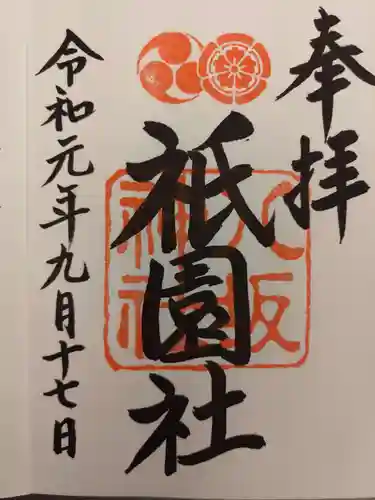 奉拝
八坂神社
祇園社
令和元年九月十七日